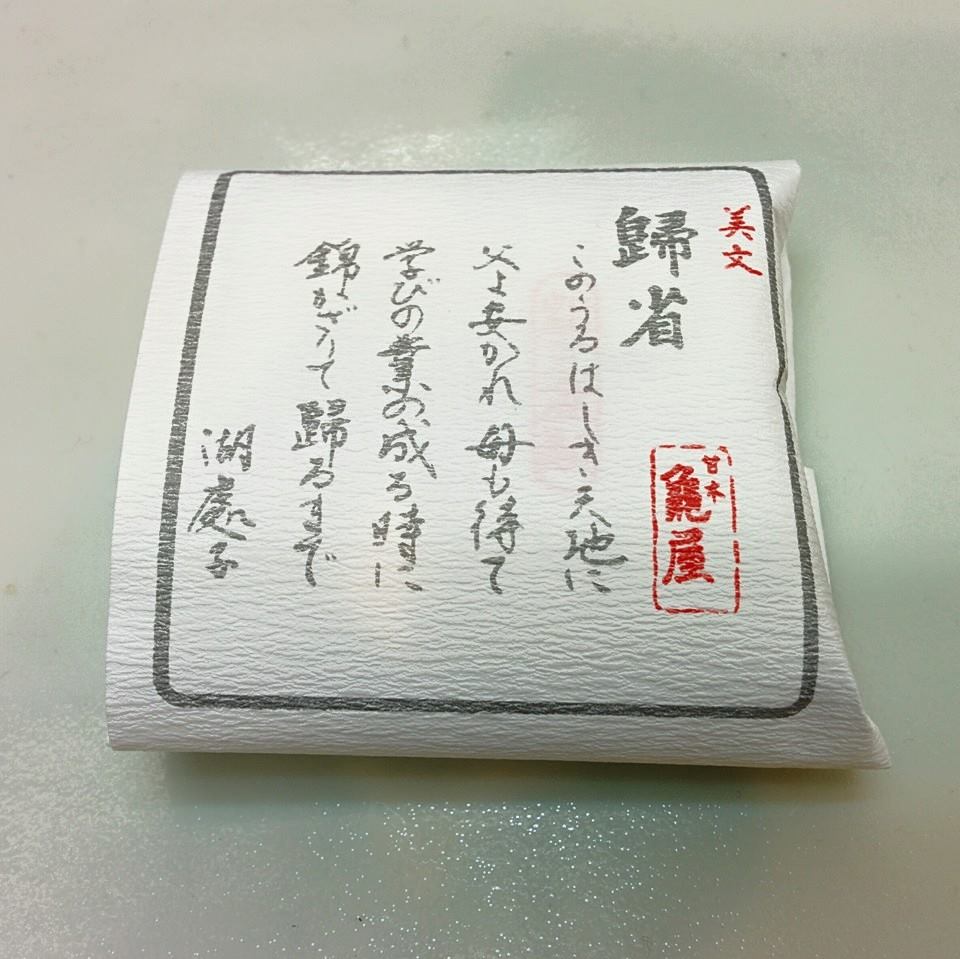 美文
歸省
このうるはしき天地に
父よ安かれ母も待て
学びの業の成る時に
錦かざりて歸るまで
湖處子
甘木
亀屋